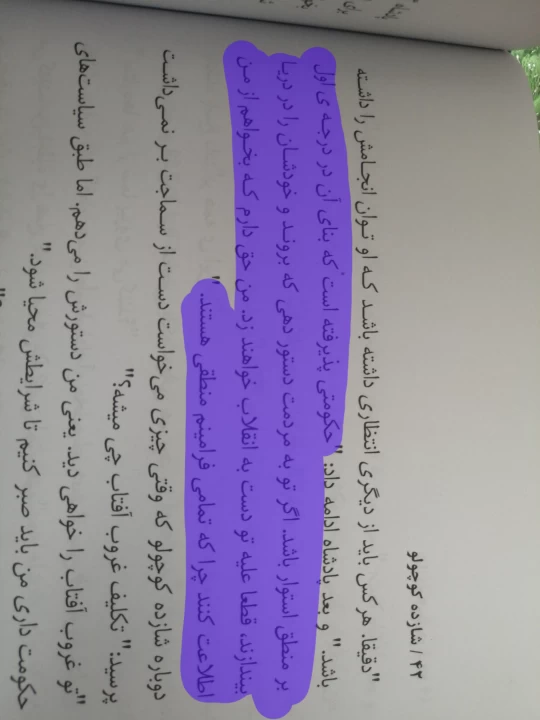 ۴۲ / شازده کوچولو
"دقیقا. هرکس باید از دیگری انتظاری داشته باشد که او توان انجامش را داشته
باشد." و بعد پادشاه ادامه داد: "حکومتی پذیرفته است که بنای آن در درجه ی اول
بر منطق استوار باشد. اگر تو به مردمت دستور دهی که بروند و خودشان را در دریا
بیندازند، قطعا علیه تو دست به انقلاب خواهند زد. من حق دارم که بخواهم از من
اطلاعت کنند چرا که تمامی فرامینم منطقی هستند."
دوباره شازده کوچولو که وقتی چیزی می‌خواست دست از سماجت بر نمی‌داشت
پرسید: "تکلیف غروب آفتاب چی میشه؟"
"تو غروب آفتاب را خواهی دید. یعنی من دستورش را می‌دهم. اما طبق سیاست‌های
حکومت داری من باید صبر کنیم تا شرایطش محیا شود."